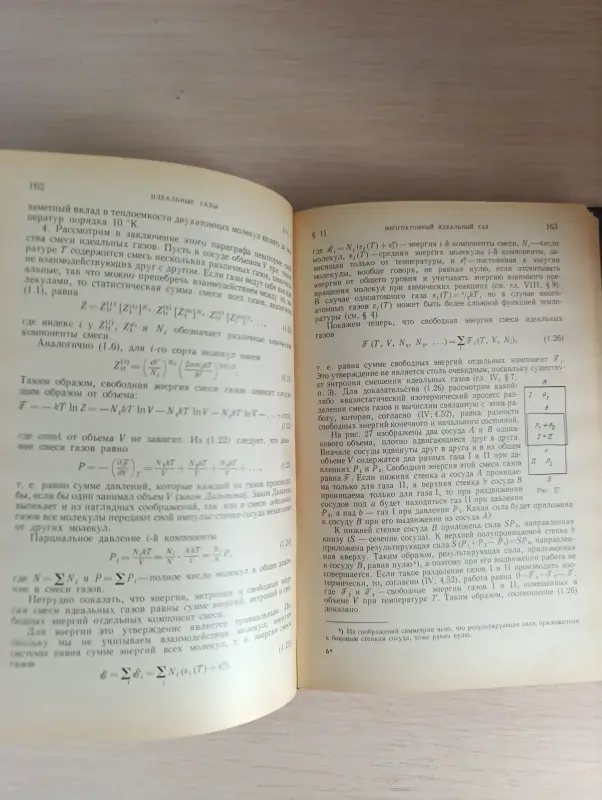 162
ИДЕАЛЬНЫЕ ГАЗЫ
заметный вклад в теплоемкости двухатомных молекул вплоть до тем-
ператур порядка 10 °К.
4. Рассмотрим в заключение этого параграфа некоторые
ства смеси идеальных газов. Пусть в сосуде объемом V при темпе-
ратуре T содержится смесь нескольких различных газов, химически
не взаимодействующих друг с другом. Если газы ведут себя как иде-
альные, так что можно пренебречь взаимодействием между
лекулами, то статистическая сумма смеси всех газов, аналогично
(1.1), равна
где индекс i у и N_i обозначают различные
компоненты смеси.
Аналогично (1.6), для i-го сорта молекул имеем
Таким образом, свободная энергия смеси газов зависит
щим образом от объема:
ℱ = −kT ln Z = −N₁kT ln V − N₂kT ln V −
где const от объема V не зависит. Из (1.22) следует, что
ние смеси газов равно
т. е. равно сумме давлений, которые каждый из газов
бы, если бы один занимал объем V (закон Дальтона). Закон Дальтона
вытекает и из наглядных соображений, так как в смеси идеальных
газов все молекулы передают свой импульс стенке сосуда независимо
от других молекул.
Парциальное давление i-й компоненты
P_i = N_i kT/V = N_i/N · NkT/V = N_i/N P,
где N = ∑ N_i и P = ∑ P_i — полное число молекул и общее давле-
ние в смеси газов.
Нетрудно показать, что энергия, энтропия и свободная энер-
гия смеси идеальных газов равны сумме энергий, энтропий и сво-
бодных энергий отдельных компонент смеси.
Для энергии это утверждение является тривиальным. По-
скольку мы не учитываем взаимодействие молекул, энергия
системы равна сумме энергий всех молекул, т. е. энергия смеси
газов
ℰ = ∑ ℰ_i = ∑ N_i (ε_i (T) + ε_i⁰),
§ 1]
МНОГОАТОМНЫЙ ИДЕАЛЬНЫЙ ГАЗ
163
где ℰ_i — N_i (ε_i (T) + ε_i⁰) — энергия i-й компоненты смеси, N_i — число
молекул, ε_i (T) — средняя энергия молекулы i-й компоненты, за-
висящая только от температуры, и ε_i⁰ — постоянная в энергии
молекулы, вообще говоря, не равная нулю, если отсчитывать
энергии от общего уровня и учитывать энергию взаимного пре-
вращения молекул при химических реакциях (см. гл. VIII, § 9).
В случае одноатомного газа ε_i (T) = ³/₂kT, но в случае много-
атомных газов ε_i (T) может быть более сложной функцией темпе-
ратуры (см. § 4).
Покажем теперь, что свободная энергия смеси идеальных
газов
ℱ (T, V, N₁, N₂, ...) = ∑ ℱ_i (T, V, N_i), (1.26)
т. е. равна сумме свободных энергий отдельных компонент ℱ_i.
Это утверждение не является столь очевидным, поскольку существу-
ет энтропия смешения идеальных газов (гл. IV, § 7,
п. 3). Для доказательства (1.26) рассмотрим какой-
либо квазистатический изотермический процесс раз-
деления смеси газов и вычислим связанную с этим ра-
боту, которая, согласно (IV; 4.52), равна разности
свободных энергий конечного и начального состояний.
На рис. 27 изображены два сосуда A и B одина-
кового объема, плотно вдвигающиеся друг в друга.
Вначале сосуды вдвинуты друг в друга и в их общем
объеме V содержатся два разных газа I и II при дав-
лениях P₁ и P₂. Свободная энергия этой смеси газов
равна ℱ. Если нижняя стенка a сосуда A проницае-
ма только для газа II, а верхняя стенка b сосуда B
проницаема только для газа I, то при раздвижении
сосудов под a будет находиться газ II при давлении
P₂, а над b — газ I при давлении P₁. Какая сила будет приложена
к сосуду B при его выдвижении из сосуда A?
К нижней стенке сосуда B приложена сила SP₂, направленная
книзу (S — сечение сосуда). К верхней полупроницаемой стенке b
приложена результирующая сила S (P₁ + P₂ − P₁) = SP₂, направлен-
ная кверху. Таким образом, результирующая сила, приложенная
к сосуду B, равна нулю¹), а поэтому при его выдвижении работа не
совершается. Если такое разделение газов I и II производить изо-
термично, то, согласно (IV; 4.52), работа равна 0 = ℱ₁ + ℱ₂ − ℱ,
где ℱ₁ и ℱ₂ — свободные энергии газов I и II, помещенных в
объеме V при температуре T. Таким образом, соотношение (1.26)
доказано.
I P₁
P₁ + P₂
I + II
II P₂
Рис. 27
¹) Из соображений симметрии ясно, что результирующая сила, приложенная
к боковым стенкам сосуда, тоже равна нулю.
6*